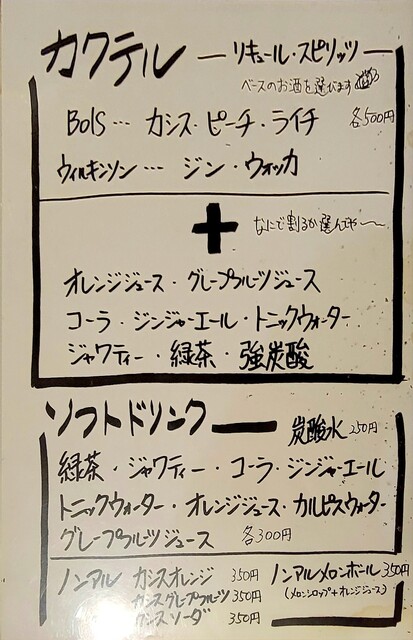 カクテル ― リキュール・スピリッツ ―
ベースのお酒を選びます
Bols … カシス・ピーチ・ライチ 各500円
ウィルキンソン … ジン・ウォッカ
+ なにで割るか選んでや〜〜
オレンジジュース・グレープフルーツジュース
コーラ・ジンジャーエール・トニックウォーター
ジャワティー・緑茶・強炭酸
ソフトドリンク ― 炭酸水 250円
緑茶・ジャワティー・コーラ・ジンジャーエール
トニックウォーター・オレンジジュース・カルピスウォーター
グレープフルーツジュース 各300円
ノンアル カシスオレンジ 350円 ノンアルメロンボール 350円
カシスグレープフルーツ 350円 (メロンシロップ+オレンジジュース)
カシスソーダ 350円